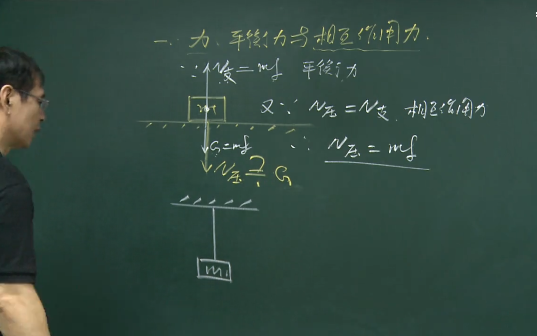 一、力、平衡力与相互作用力.
∵ N支 = mg 平衡力
m
又∵ N压 = N支 相互作用力
G = mg
∴ N压 = mg
N压 = G
m